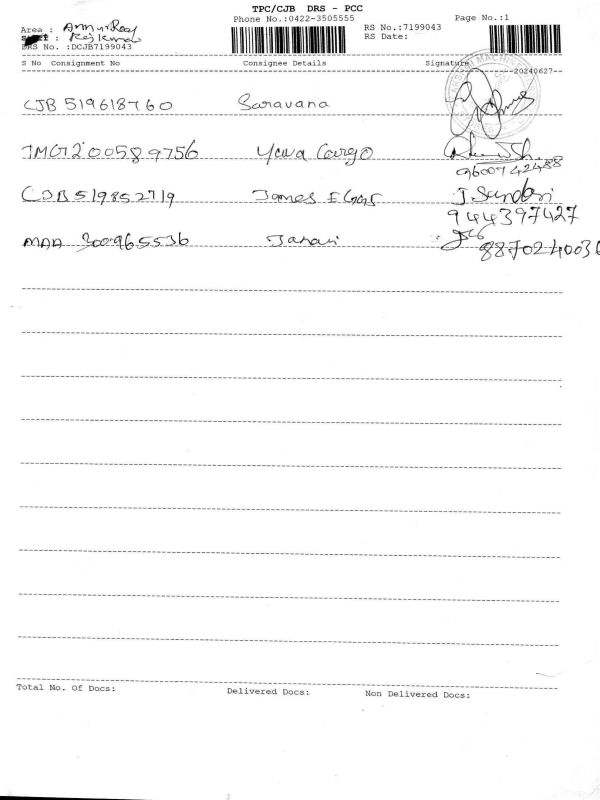 TPC/CJB DRS - PCC
Phone No.:0422-3505555 Page No.:1
RS No.:7199043
Area : Annur Road
: Rajkumar
RS Date:
DRS No. :DCJB7199043
S No Consignment No Consignee Details Signature
20240627
CJB 519618760 Saravana
200589756 Yava Cargo
9600742488
CJB 519852719 James J Sundari
944397427
MAA 300965536 Janani
8870240036
Total No. Of Docs: Delivered Docs: Non Delivered Docs: